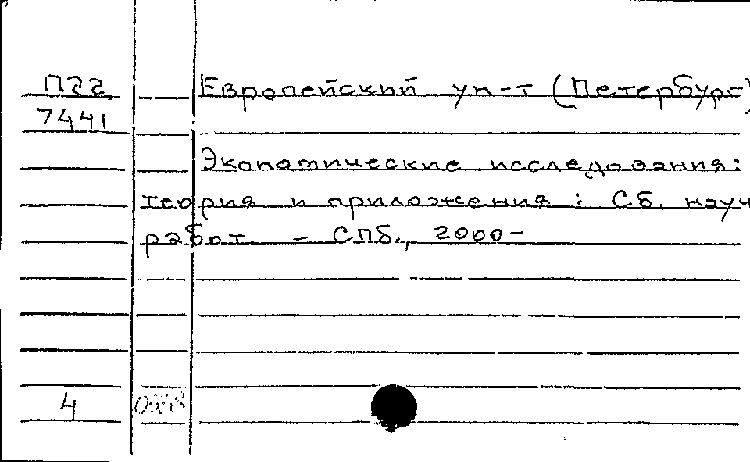 П22
7441
Европейский ун-т (Петербург)
Экономические исследования:
теория и приложения : Сб. науч
работ. - СПб., 2000-
4